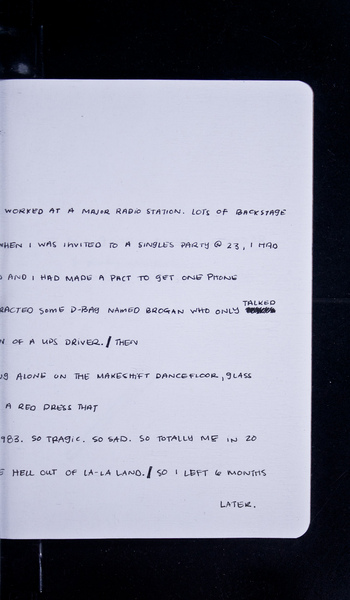 WORKED AT A MAJOR RADIO STATION. LOTS OF BACKSTAGE
WHEN I WAS INVITED TO A SINGLES PARTY @ 23, I HAD
AND I HAD MADE A PACT TO GET ONE PHONE
RACTED SOME D-BAG NAMED BROGAN WHO ONLY TALKED
OF A UPS DRIVER. / THEN
ALONE ON THE MAKESHIFT DANCEFLOOR, GLASS
A RED DRESS THAT
983. SO TRAGIC. SO SAD. SO TOTALLY ME IN 20
HELL OUT OF LA-LA LAND. / SO I LEFT 6 MONTHS
LATER.